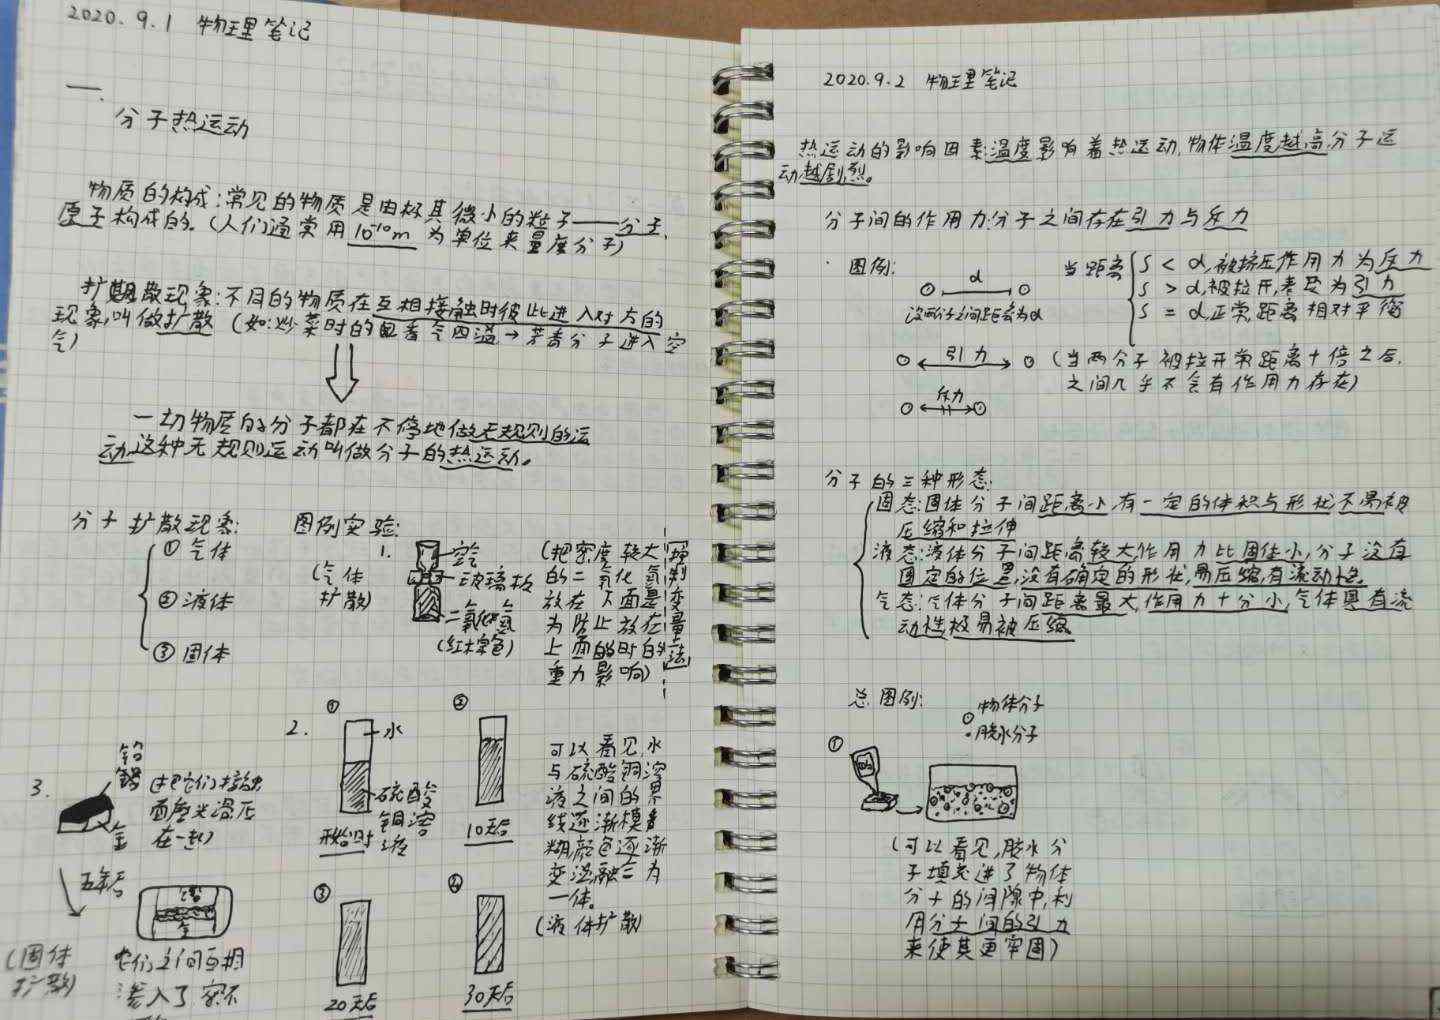 2020.9.1 物理笔记
一.
分子热运动
物质的构成:常见的物质是由极其微小的粒子——分子、
原子构成的。(人们通常用10⁻¹⁰m 为单位来量度分子)
扩散现象:不同的物质在互相接触时彼此进入对方的
现象,叫做扩散 (如:炒菜时的香气四溢→芳香分子进入空
气)
一切物质的分子都在不停地做无规则的运
动,这种无规则运动叫做分子的热运动。
分子扩散现象:
①气体
②液体
③固体
图例实验:
1.
(气体
扩散)
空气
玻璃板
二氧化氮
(红棕色)
(把密度较大
的二氧化氮
放在下面是
为防止放在
上面的时的
重力影响)
控制变量法
2.
①
水
硫酸
铜溶
液
开始时
②
10天后
③
20天后
④
30天后
可以看见,水
与硫酸铜溶
液之间的界
线逐渐模
糊,颜色逐渐
变混融合为
一体。
(液体扩散)
3.
铅
金
(把它们接触
面磨光滑压
在一起)
五年后
铅
金
(固体
扩散)
它们之间互相
渗入了
2020.9.2 物理笔记
热运动的影响因素:温度影响着热运动,物体温度越高,分子运
动越剧烈。
分子间的作用力:分子之间存在引力与斥力
图例:
α
设两分子间距离为α
当距离
S < α,被挤压作用力为斥力
S > α,被拉开,表现为引力
S = α,正常距离相对平衡
引力
(当两分子被拉开常距离十倍之后,
之间几乎不会有作用力存在)
斥力
分子的三种形态:
固态:固体分子间距离小,有一定的体积与形状不易被
压缩和拉伸
液态:液体分子间距离较大作用力比固体小,分子没有
固定的位置,没有确定的形状,易压缩,有流动性。
气态:气体分子间距离最大,作用力十分小,气体具有流
动性极易被压缩
总图例:
物体分子
胶水分子
①
(可以看见,胶水分
子填充进了物体
分子的间隙中,利
用分子间的引力
来使其更牢固)